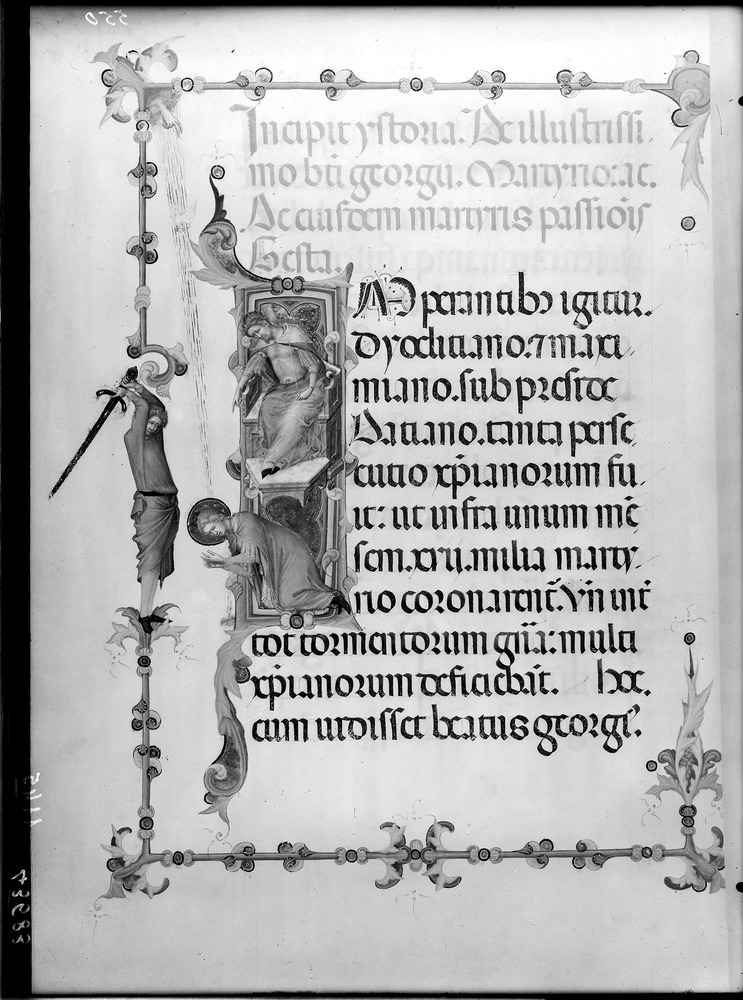 550
Incipit ystoria. De illustrissi
mo bti georgii. Martyrio: ac.
De eiusdem martyris passiõis
Gesta.
AD perantibꝫ igitur.
Dyoclitiano. ⁊ maxi
miano. sub preside
Datiano. tanta perse
cutio xp̃ianorum fu
it: ut infra unum mẽ
sem. xvii. milia marty
rio coronarent̃. Vñ int̃
tot tormentorum gña: multi
xp̃ianorum deficiebãt. hoc.
cum uidisset beatus georg̃.
43683